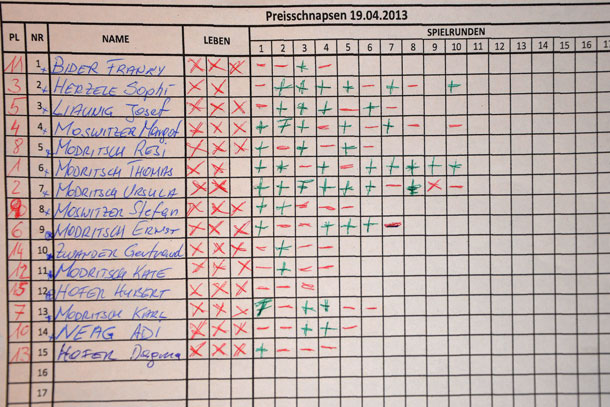 Preisschnapsen 19.04.2013
PL NR NAME LEBEN SPIELRUNDEN
1 2 3 4 5 6 7 8 9 10 11 12 13 14 15 16 17
11 1 BIDER FRANKY X X X - - + -
3 2 HERZELE Sophi X X - + + + + - + - - +
5 3 LIAUNIG Josef X X X - + + + - + -
4 4 MOSWITZER Margot X X X + + + - + - + - - -
8 5 MODRITSCH RESI X X X + - + - + -
1 6 MODRITSCH THOMAS X + + - + - + + + + +
2 7 MODRITSCH URSULA X X + + + + + + - + X -
9 8 MOSWITZER Stefan X X X + + - - -
6 9 MODRITSCH ERNST X X X + - - + + + -
14 10 ZWANDER Gertraud X X X - + - -
12 11 MODRITSCH KATE X X X - + - -
15 12 HOFER HUBERT X X X - - -
7 13 MODRITSCH KARL X X X + - + + - -
10 14 NEAG ADI X X X - - + + -
13 15 HOFER Dagmar X X X + - - -
16
17